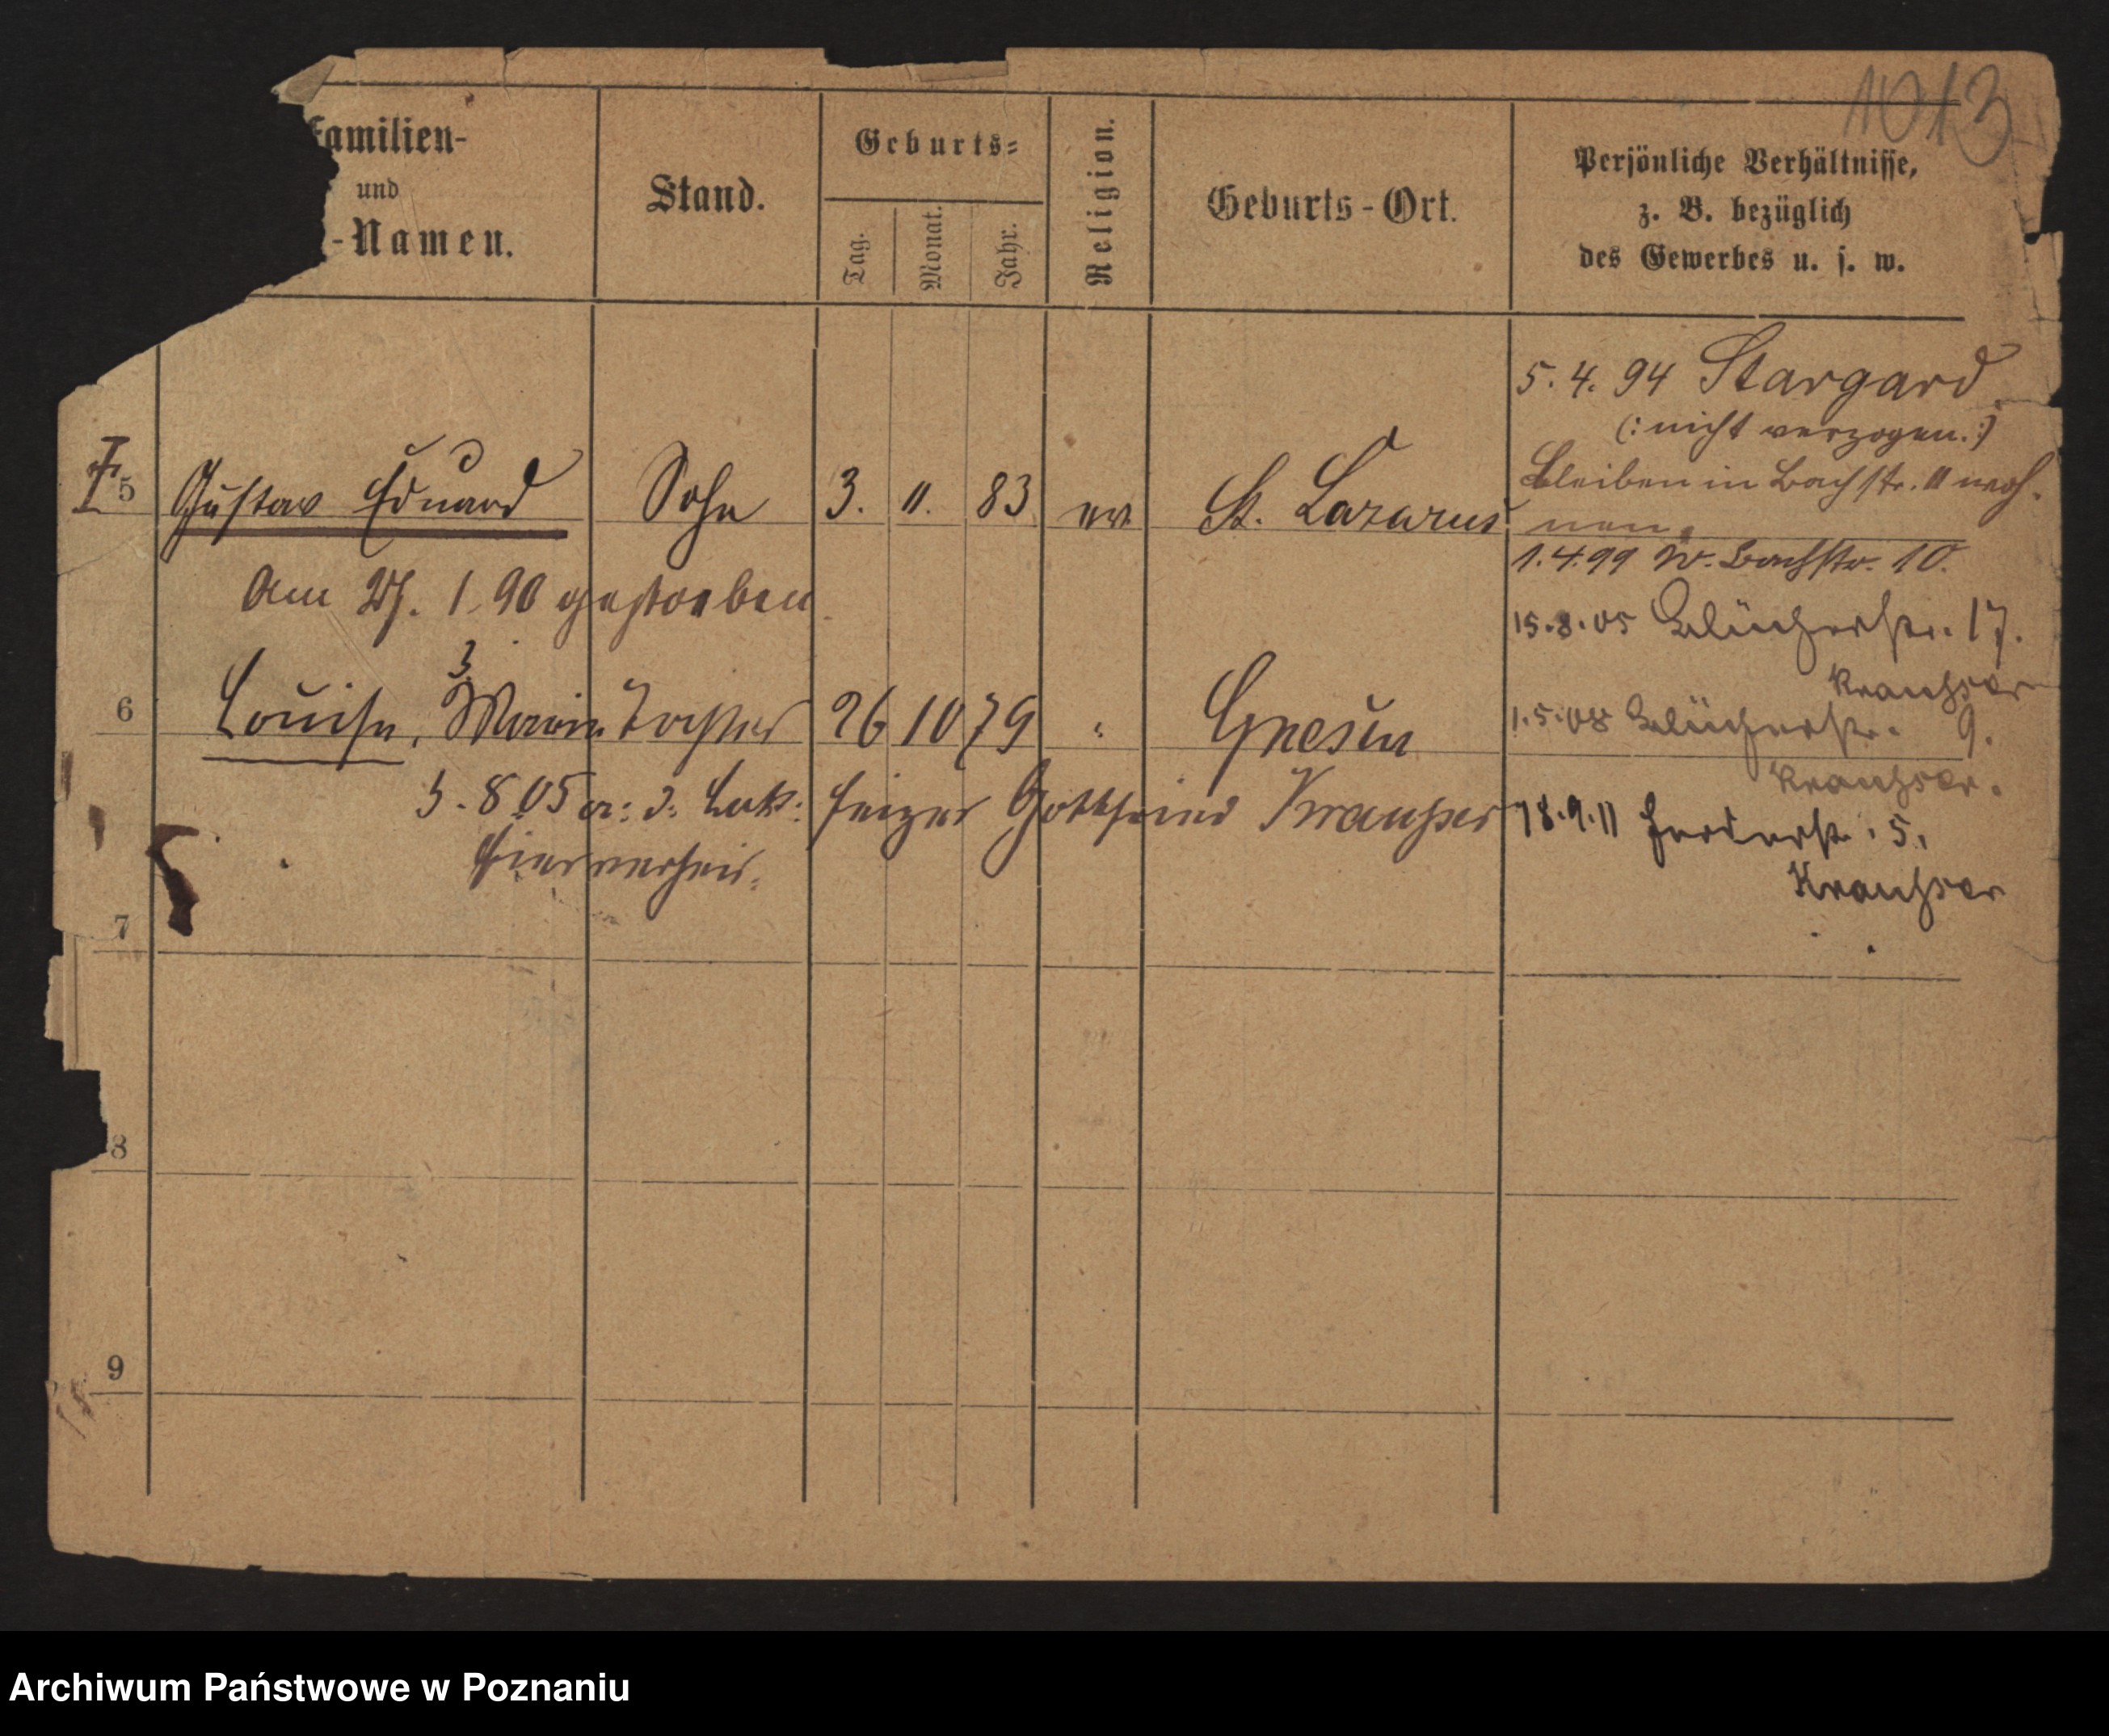 1013
Familien-
und
-Namen.
Stand.
Geburts-
Tag.
Monat.
Jahr.
Religion.
Geburts-Ort.
Persönliche Verhältnisse,
z. B. bezüglich
des Gewerbes u. s. w.
5. 4. 94 Stargard
(: nicht verzogen. :)
bleiben in Bachstr. 11 woh-
nen.
5 Gustav Eduard Sohn 3. 11. 83 ev St. Lazarus
1.4.99 W. Bachstr. 10.
Am 27. 1. 90 gestorben
15.8.05 Blücherstr. 17.
Krausser
6 Louise, Marie Tochter 26 10 79 " Gnesen
1.5.08 Blücherstr. 9.
Krausser.
3. 8 05 a: d. Heizer Gottfried Krausser
hier verheir.
18.9.11 Herderstr. 5.
Krausser
7
8
9
Archiwum Państwowe w Poznaniu